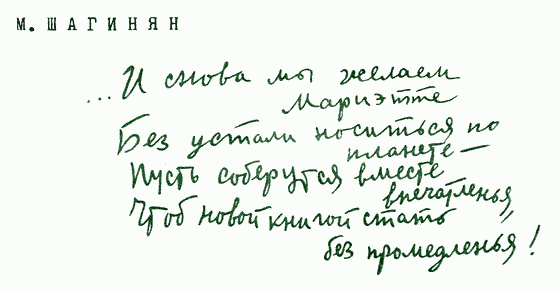 М. ШАГИНЯН
...И снова мы желаем
Мариэтте
Без устали носиться по
планете —
Пусть соберутся вместе
впечатленья,
Чтоб новой книгой стать
без промедленья!